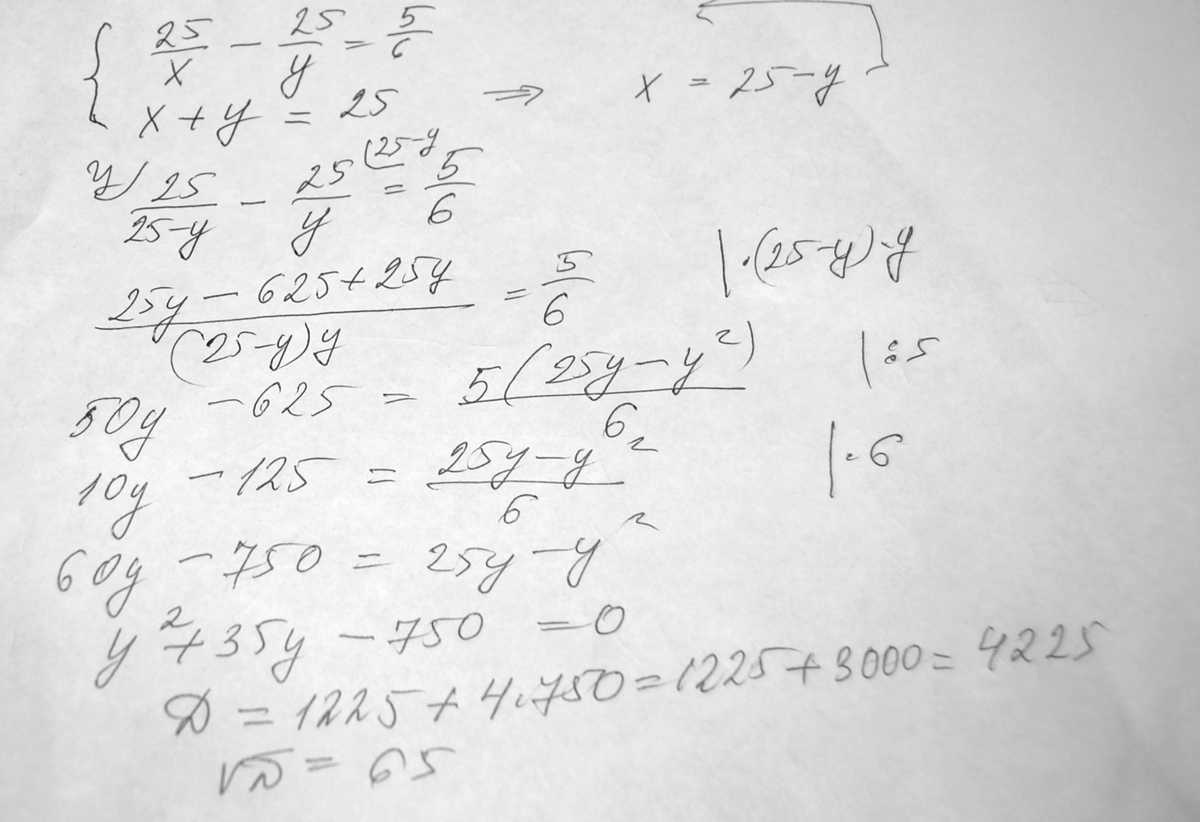 { 25/x - 25/y = 5/6
x + y = 25 ⇒ x = 25 - y
y) 25/(25-y) - 25/y (25-y = 5/6
(25y - 625 + 25y)/((25-y)y) = 5/6 | ·(25-y)·y
50y - 625 = 5(25y - y²)/6 | :5
10y - 125 = (25y - y²)/6 | ·6
60y - 750 = 25y - y²
y² + 35y - 750 = 0
D = 1225 + 4·750 = 1225 + 3000 = 4225
√D = 65